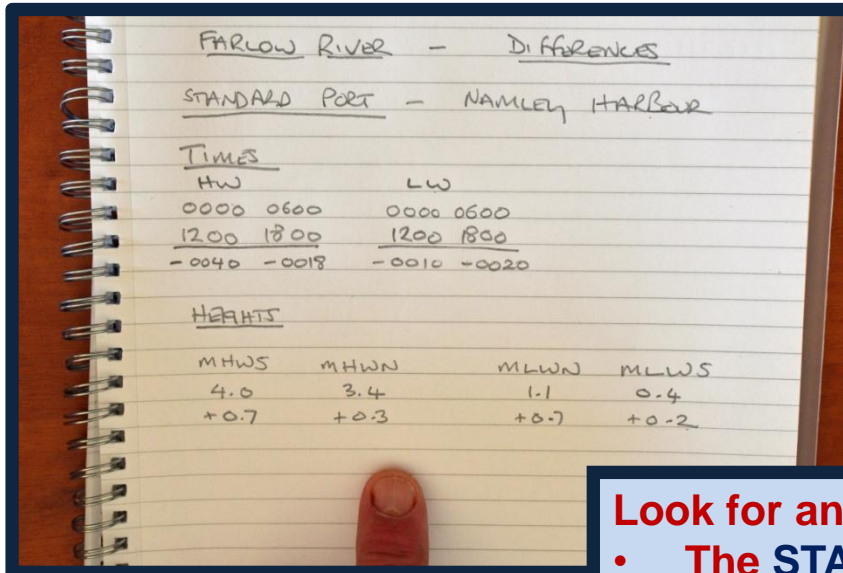 FARLOW RIVER - DIFFERENCES
STANDARD PORT - NAMLEY HARBOUR
TIMES
HW LW
0000 0600 0000 0600
1200 1800 1200 1800
-0040 -0018 -0010 -0020
HEIGHTS
MHWS MHWN MLWN MLWS
4.0 3.4 1.1 0.4
+0.7 +0.3 +0.7 +0.2
Look for an
• The STA